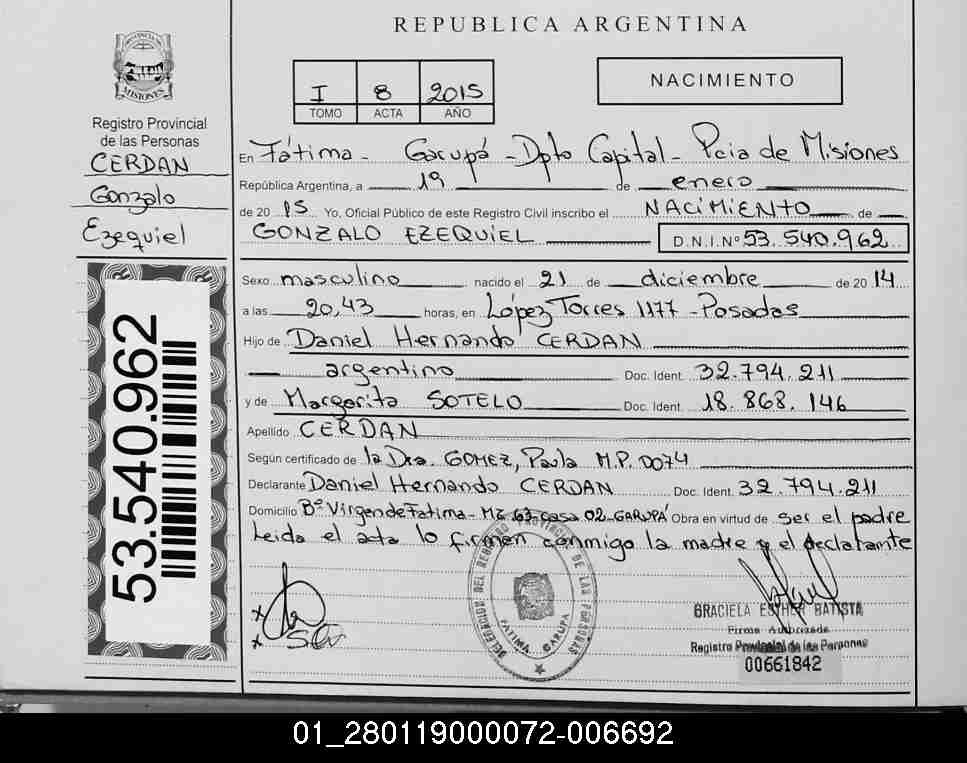 REPUBLICA ARGENTINA
PROVINCIA DE
MISIONES
Registro Provincial
de las Personas
CERDAN
Gonzalo
Ezequiel
53.540.962
I 8 2015
TOMO ACTA AÑO
NACIMIENTO
En Fátima - Garupá - Dpto Capital - Pcia de Misiones
República Argentina, a 19 de enero
de 2015 Yo, Oficial Público de este Registro Civil inscribo el NACIMIENTO de
GONZALO EZEQUIEL D.N.I.Nº 53.540.962
Sexo masculino nacido el 21 de diciembre de 2014
a las 20,43 horas, en López Torres 1177 - Posadas
Hijo de Daniel Hernando CERDAN
argentino Doc. Ident. 32.794.211
y de Margarita SOTELO Doc. Ident. 18.868.146
Apellido CERDAN
Según certificado de la Dra. GOMEZ, Paula M.P. 0074
Declarante Daniel Hernando CERDAN Doc. Ident. 32.794.211
Domicilio Bº Virgen de Fatima - Mz 63 casa 02 - GARUPÁ Obra en virtud de ser el padre
Leida el acta lo firman conmigo la madre y el declarante
DELEGACION DEL REGISTRO PROVINCIAL DE LAS PERSONAS
FATIMA GARUPA
GRACIELA ESTHER BATISTA
Firma Autorizada
Registro Provincial de las Personas
00661842
01_280119000072-006692